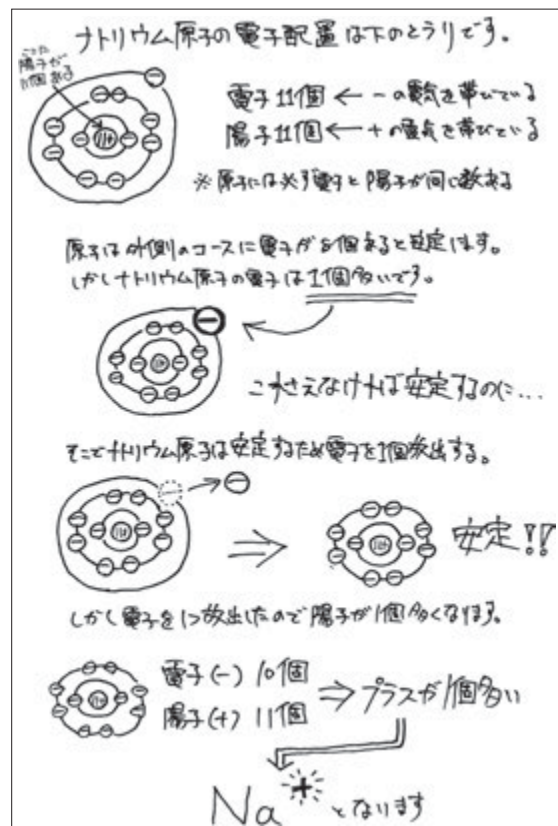 ナトリウム原子の電子配置は下のとうりです。
陽子が
11個ある
11+
電子11個 ← −の電気を帯びている
陽子11個 ← +の電気を帯びている
※原子には必ず電子と陽子が同じ数ある
原子は外側のコースに電子が8個あると安定します。
しかしナトリウム原子の電子は1個多いです。
これさえなければ安定するのに…
そこでナトリウム原子は安定するため電子を1個放出する。
⇒ 安定!!
しかし電子を1つ放出したので陽子が1個多くなります。
電子(−) 10個
陽子(+) 11個
⇒プラスが1個多い
Na+となります